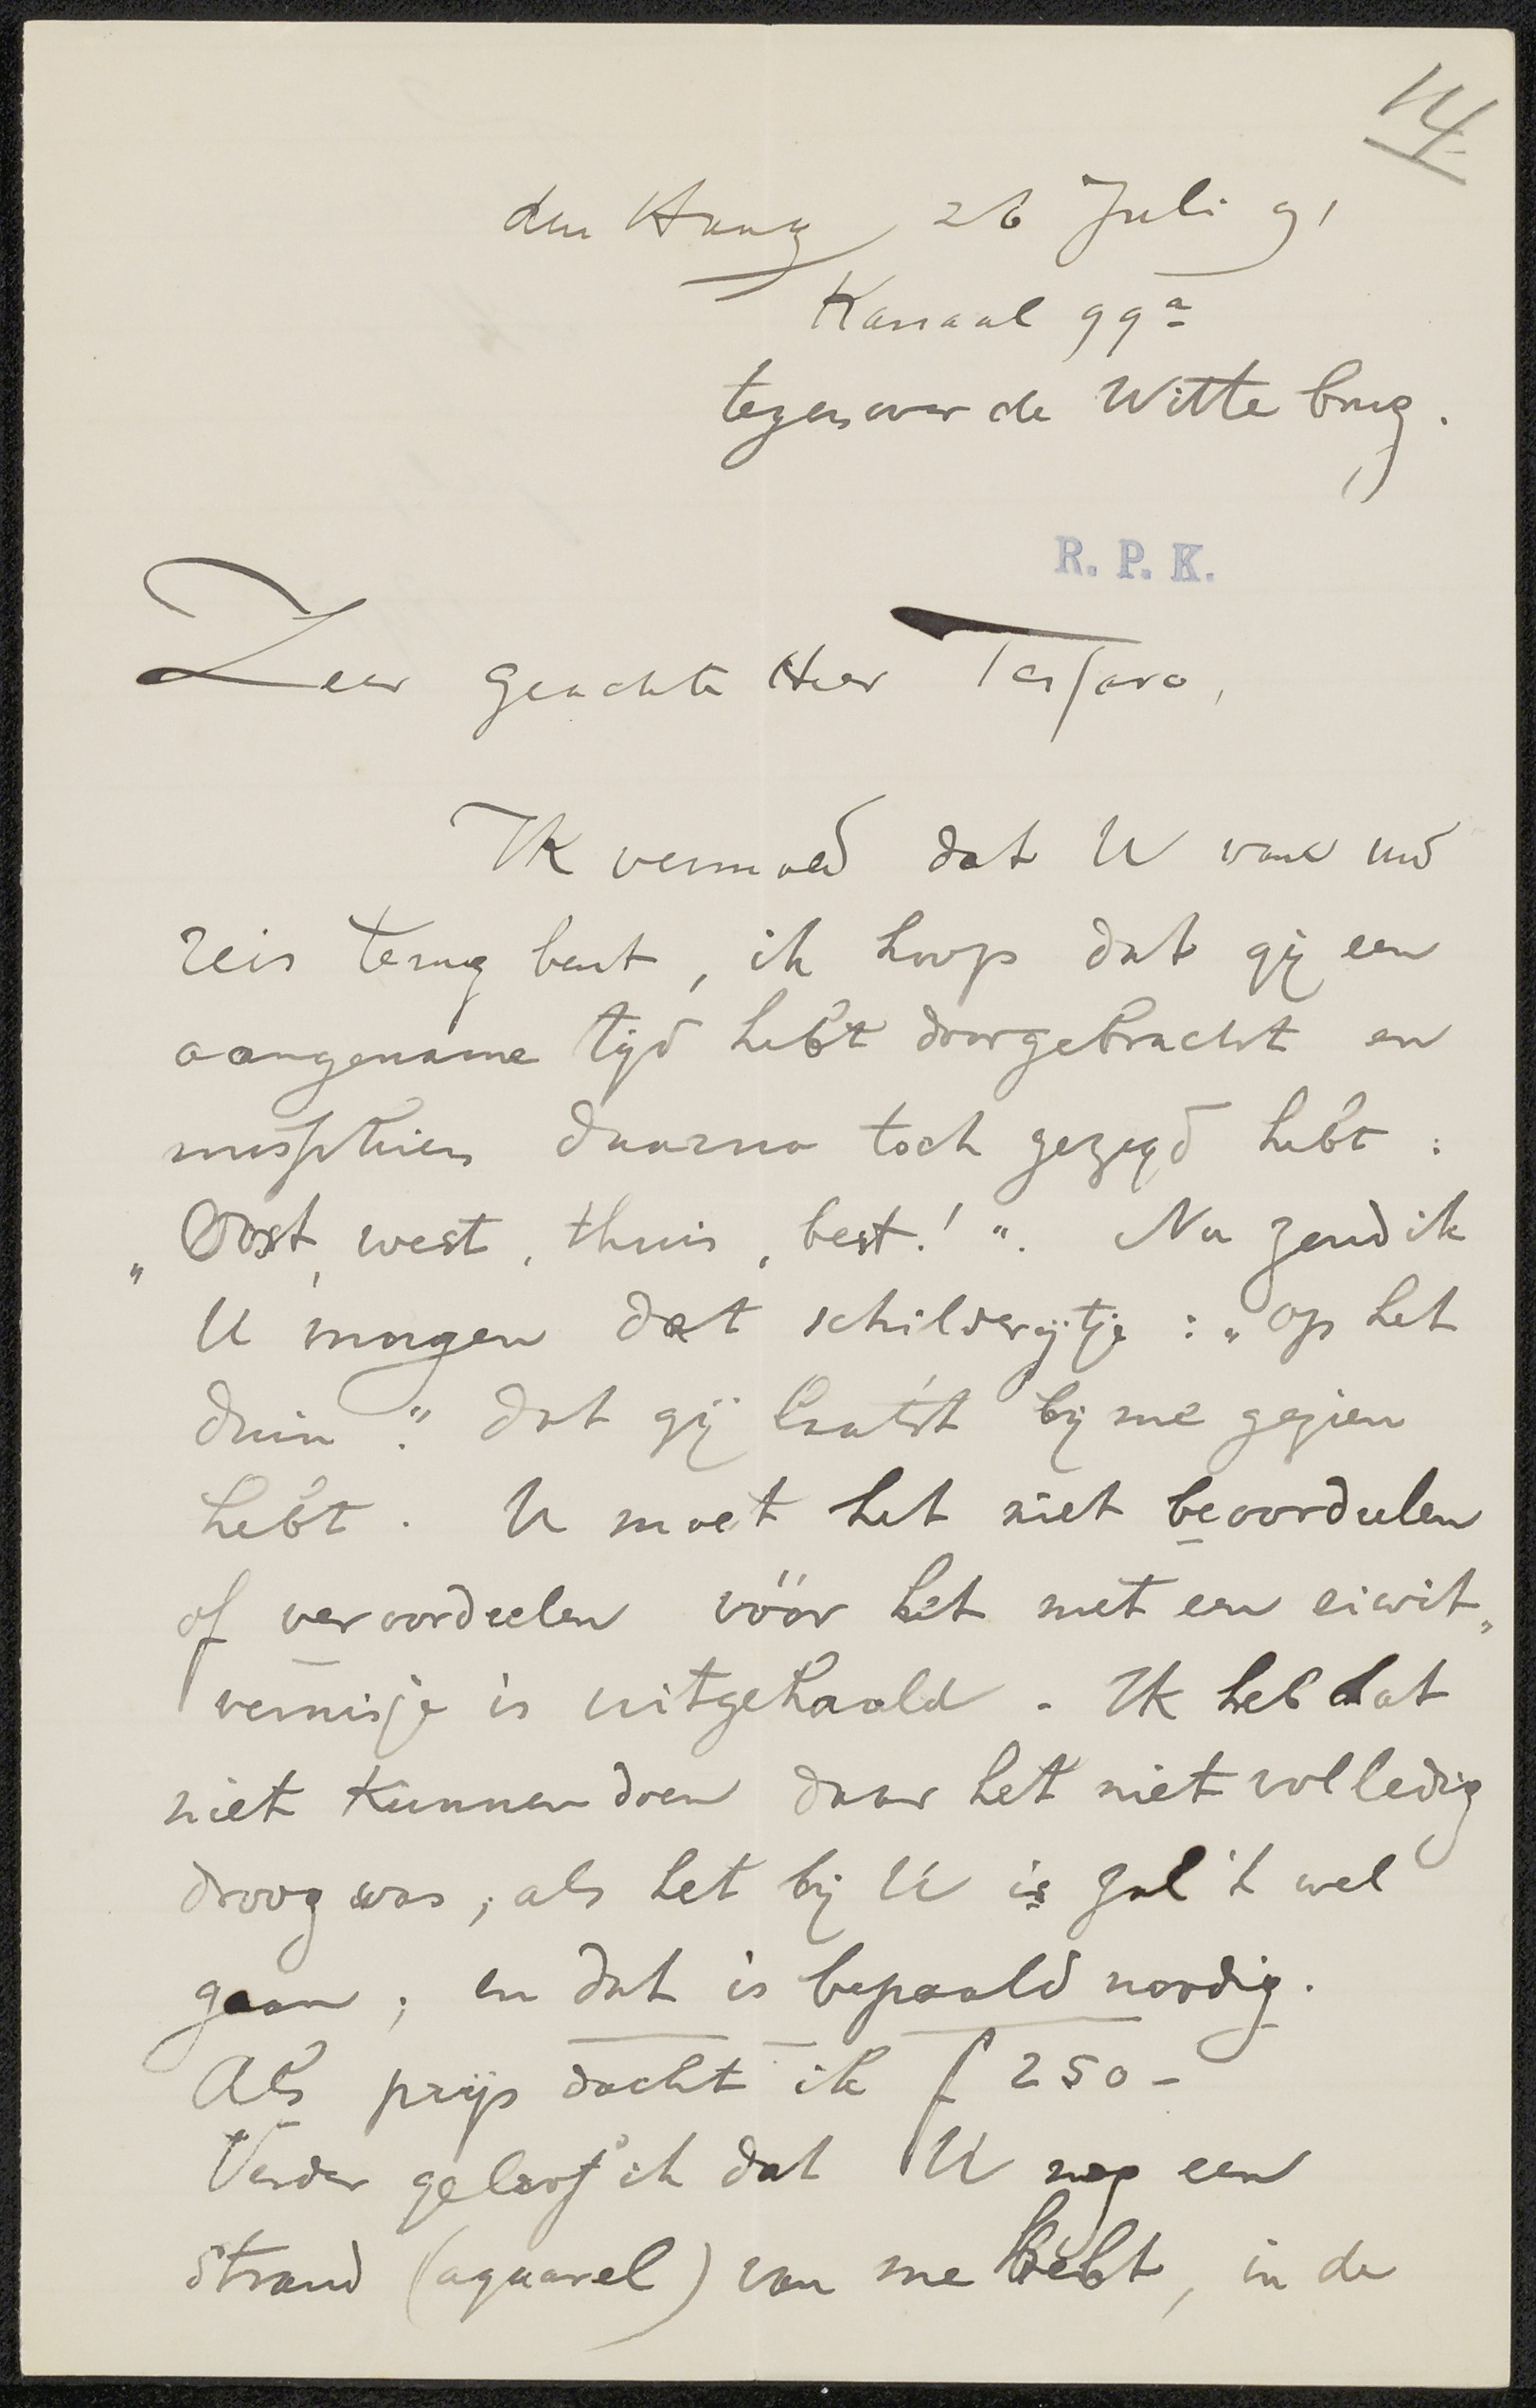 14
den Haag 26 Juli 91
Kanaal 99a
tegenover de Witte brug.
R. P. K.
Zeer geachte Heer Tersteeg,
Ik vermoed dat U van uw
reis terug bent, ik hoop dat gij een
aangename tijd hebt doorgebracht en
misschien daarna toch gezegd hebt :
„Oost, west, thuis, best! “. Nu zend ik
U morgen dat schilderijtje : „op het
duin “. dat gij laatst bij me gezien
hebt. U moet het niet beoordeelen
of veroordeelen vóór het met een eiwit„
vernisje is uitgehaald. Ik heb dat
niet kunnen doen daar het niet volledig
droog was ; als het bij U is zal 't wel
gaan ; en dat is bepaald noodig.
Als prijs dacht ik f 250 –
Verder geloof ik dat U nog een
Strand (aquarel) van me hebt, in de